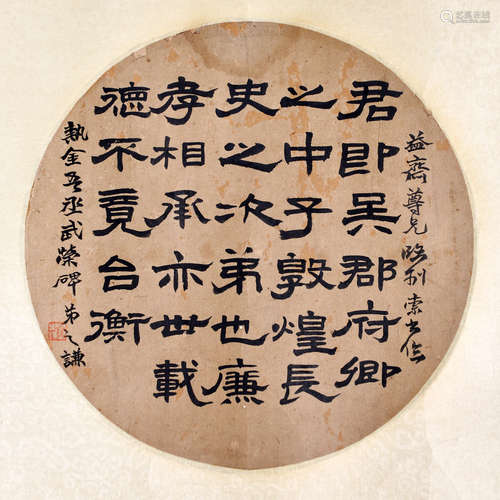 益齋尊兄
君即吴郡府卿
之中子敦煌長
史之次弟也廉
孝相承亦世載
德不竟台衡
執金吾丞武榮碑 弟之謙